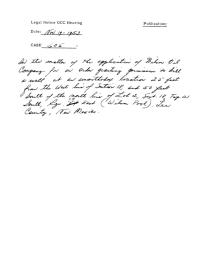 Legal Notice OCC Hearing
Publications
Date: Nov 19 - 1953
CASE 606 :
In the matter of the application of Wilson Oil
Company for an order granting permission to drill
a well at an unorthodox location 25 feet
from the West line of Section 18, and 50 feet
South of the north line of Lot 2, Sect 18, Twp 21
South, Rge East (Wilson Pool) Lea
County, New Mexico.